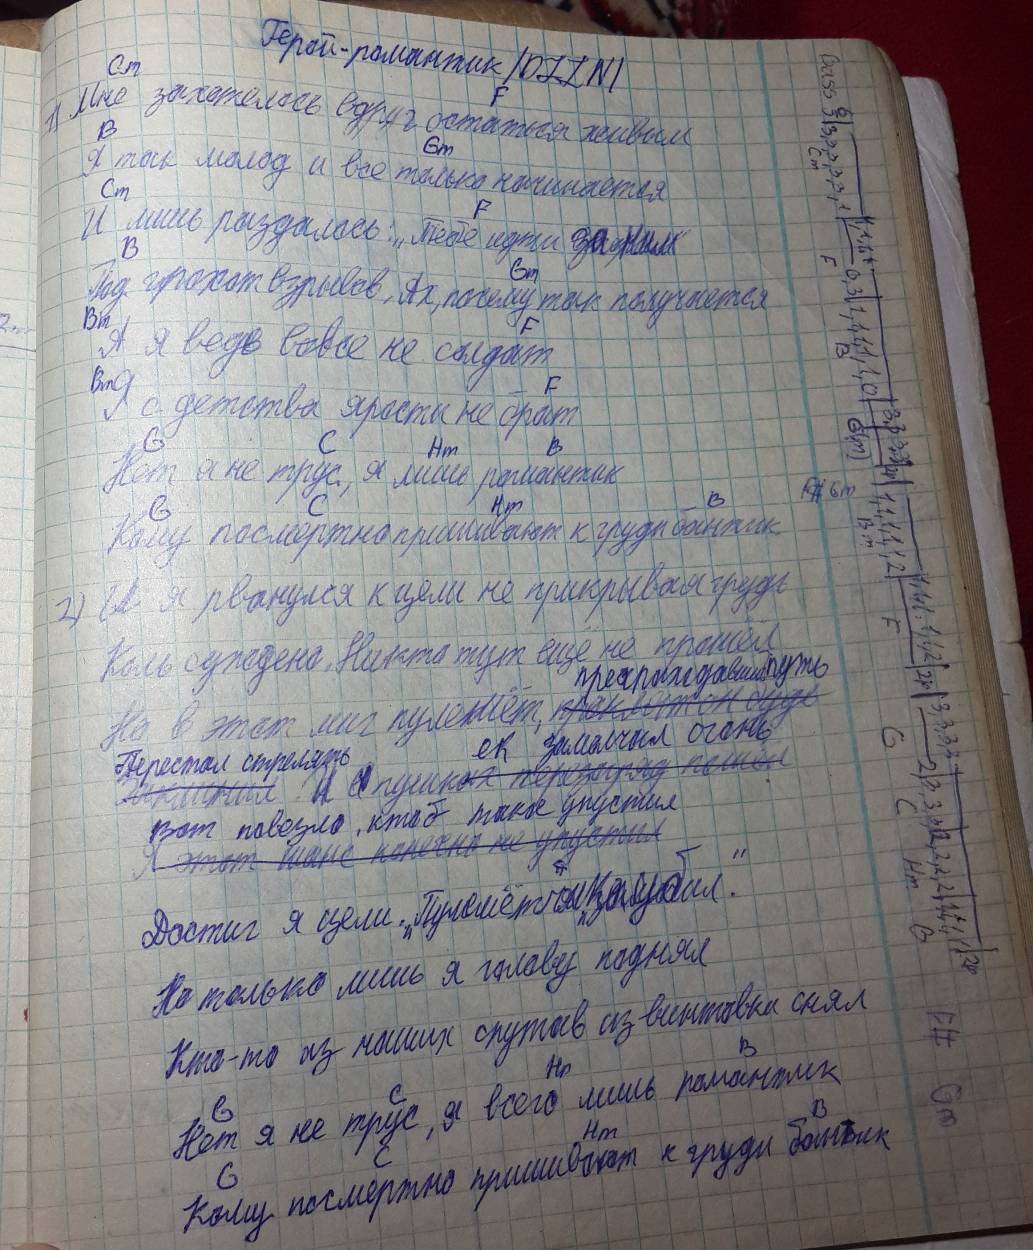 Герой-романтик /DZZN/
Cm F
1) Мне захотелось вдруг остаться живым
B Gm
Я так молод и все только начинается
Cm F
И лишь раздалось: „Тебе идти за ним"
B Gm
Под грохот взрывов, Ах, почему так получается
Bm F
А я ведь вовсе не солдат
Bm F
Я с детства ярости не брат
G C Hm B
Нет я не трус, я лишь романтик
G C Hm B
Кому посмертно пришивают к груди бантик
2) И я рванулся к цели не прикрывая грудь
Коль суждено. Никто тут ещё не прошёл
преграждавший путь
Но в этот миг пулемёт,
Перестал стрелять ек замолчал огонь
И с пушк
Вот повезло, кто б такое упустил
Я этот шанс конечно не упустил
Достиг я цели. „Пулемётчика загубил."
Но только лишь я голову поднял
Кто-то из наших спутав из винтовки снял
G C Hm B
Нет я не трус, я всего лишь романтик
G C Hm B
Кому посмертно пришивают к груди бантик
Bass
Cm F B Gm
F# Gm
Bm F G C Hm B F# Gm